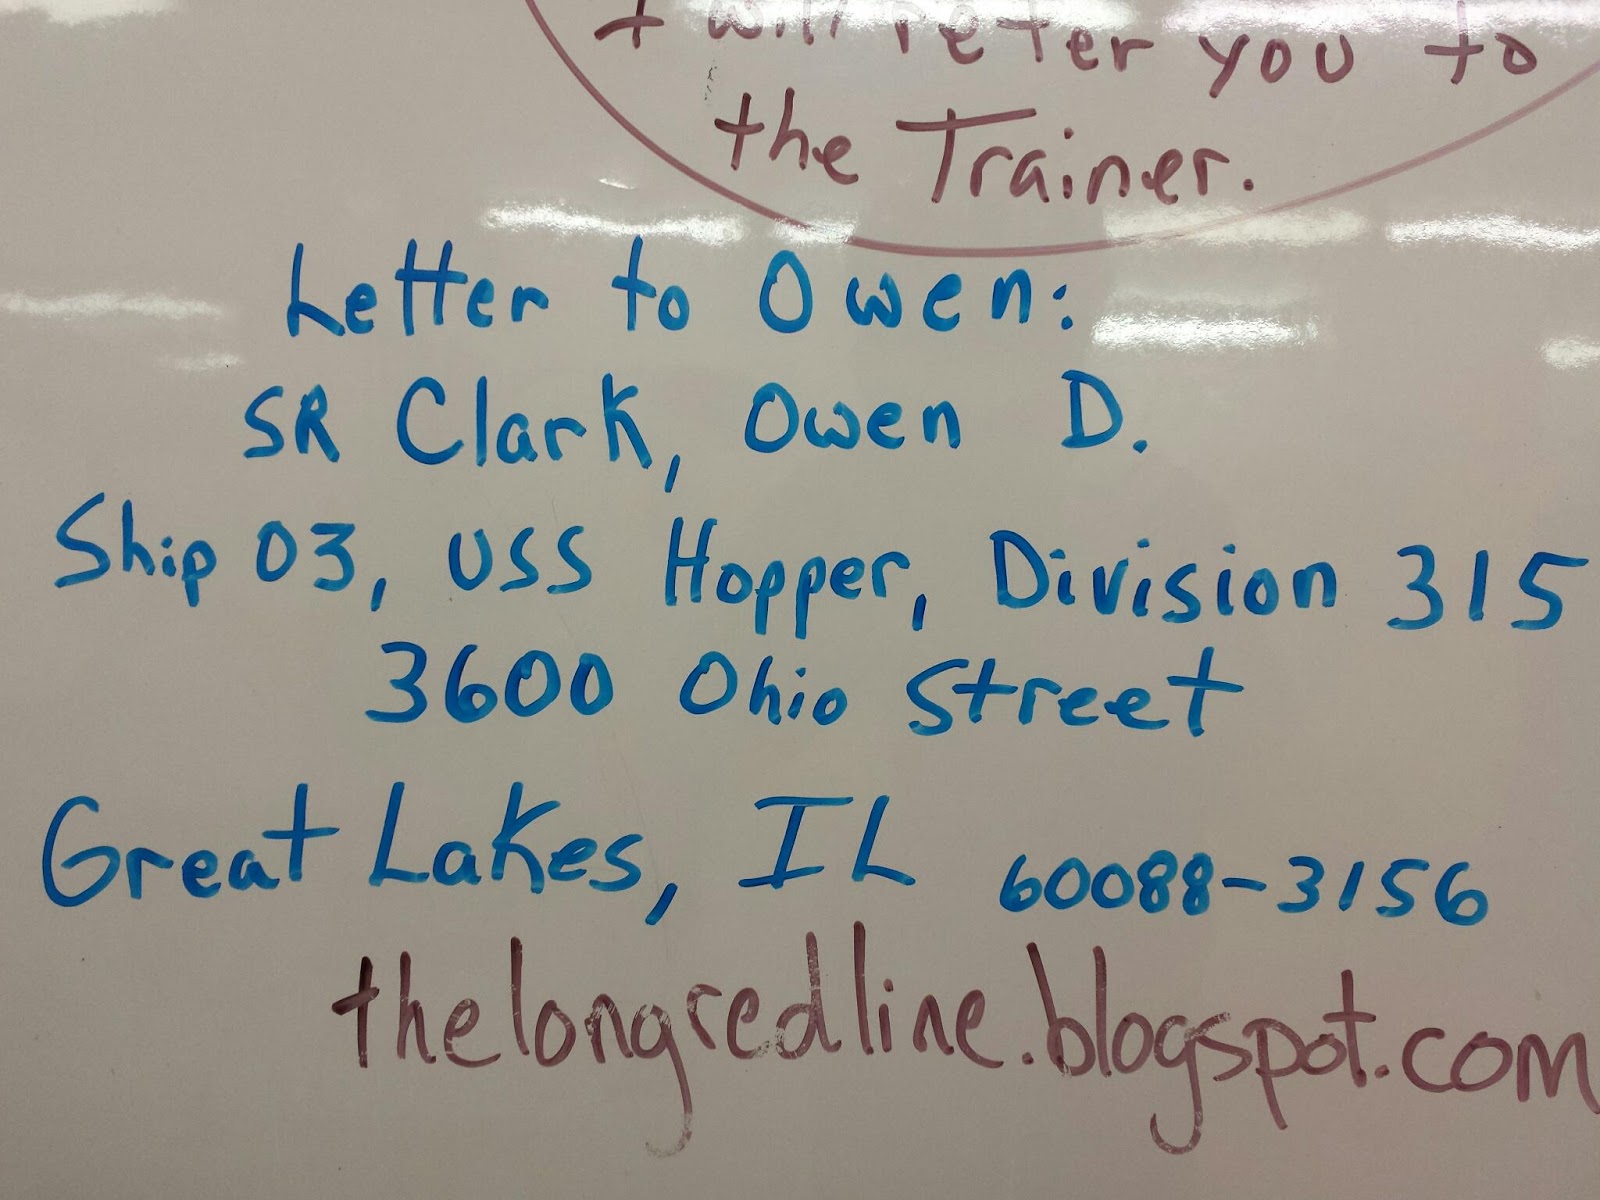 I will refer you to
the Trainer.
Letter to Owen:
SR Clark, Owen D.
Ship 03, USS Hopper, Division 315
3600 Ohio Street
Great Lakes, IL 60088-3156
thelongredline.blogspot.com